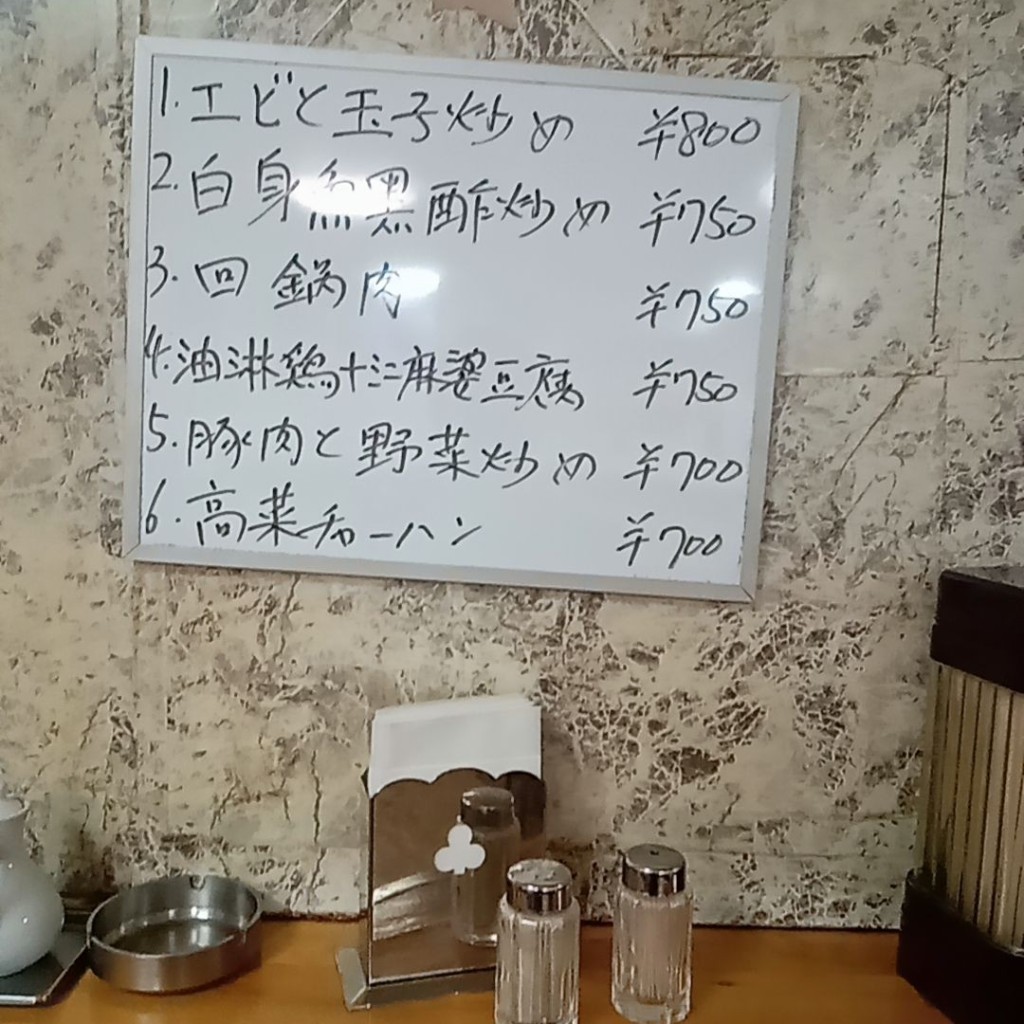 1. エビと玉子炒め ¥800
2. 白身魚黒酢炒め ¥750
3. 回鍋肉 ¥750
4. 油淋鶏+ミニ麻婆豆腐 ¥750
5. 豚肉と野菜炒め ¥700
6. 高菜チャーハン ¥700